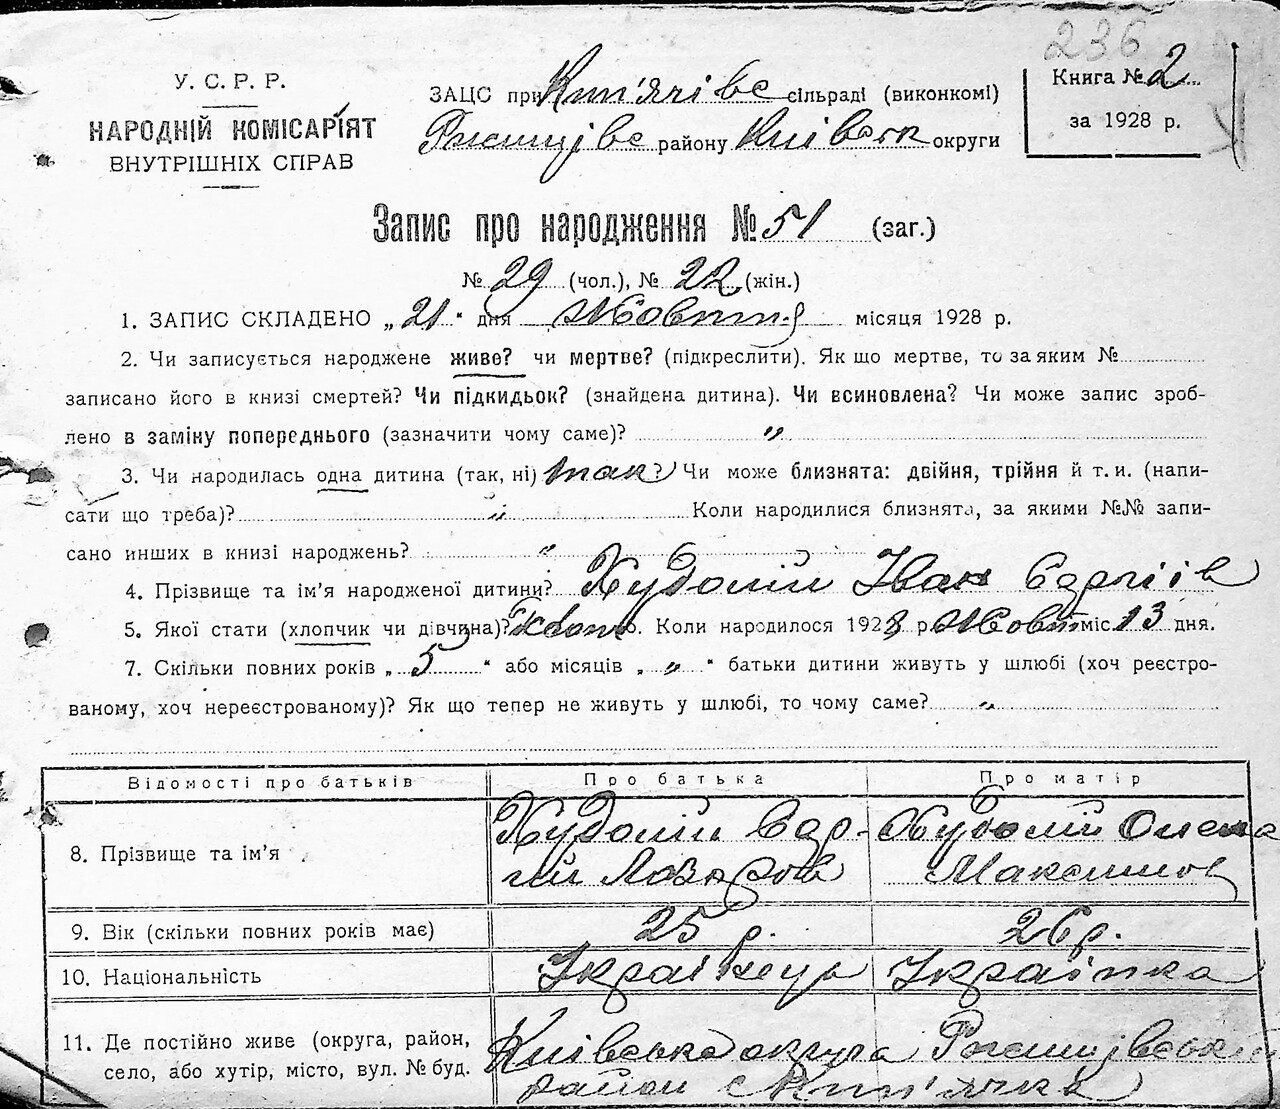 236
У. С. Р. Р.
НАРОДНІЙ КОМІСАРІЯТ
ВНУТРІШНІХ СПРАВ
ЗАЦС при Кип'ячівс сільраді (виконкомі)
Ржищівс району Київськ округи
Книга № 2
за 1928 р.
Запис про народження № 51 (заг.)
№ 29 (чол.), № 22 (жін.)
1. ЗАПИС СКЛАДЕНО „21“ дня Жовтня місяця 1928 р.
2. Чи записується народжене живе? чи мертве? (підкреслити). Як що мертве, то за яким №
записано його в книзі смертей? Чи підкидьок? (знайдена дитина). Чи всиновлена? Чи може запис зроб-
лено в заміну попереднього (зазначити чому саме)? „
3. Чи народилась одна дитина (так, ні) так? Чи може близнята: двійня, трійня й т. и. (напи-
сати що треба)? „ Коли народилися близнята, за якими №№ запи-
сано инших в книзі народжень? „
4. Прізвище та ім'я народженої дитини? Худолій Іван Сергіїв
5. Якої стати (хлопчик чи дівчина)? Хлопч. Коли народилося 1928 р. Жовтн. міс. 13 дня.
7. Скільки повних років „5“ або місяців „ „ “ батьки дитини живуть у шлюбі (хоч реєстро-
ваному, хоч нереєстрованому)? Як що тепер не живуть у шлюбі, то чому саме? „
Відомості про батьків Про батька Про матір
8. Прізвище та ім'я Худолій Сер- Худолій Олена
гій Лазаров Максимов
9. Вік (скільки повних років має) 25 р. 26 р.
10. Національність Українець Українка
11. Де постійно живе (округа, район,
село, або хутір, місто, вул. № буд.
Київська округа Ржищівський
район с Кип'ячка